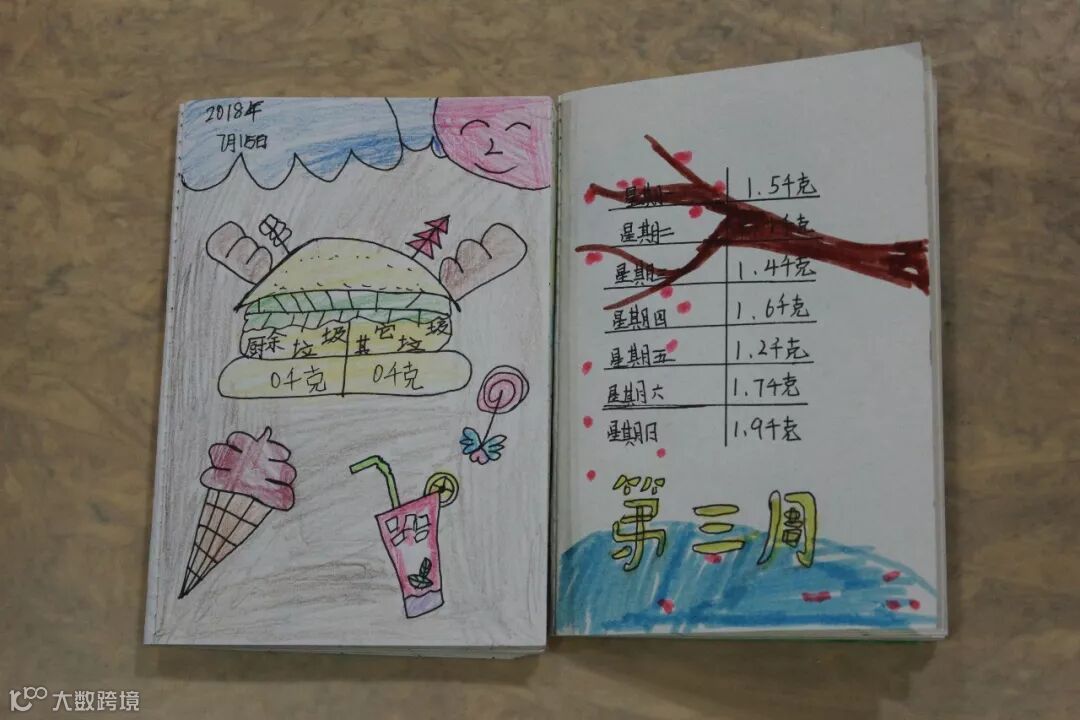 2018年
7月15日
厨余垃圾 其它垃圾
0千克 0千克
星期一 1.5千克
星期二 千克
星期三 1.4千克
星期四 1.6千克
星期五 1.2千克
星期六 1.7千克
星期日 1.9千克
第三周
大数跨境